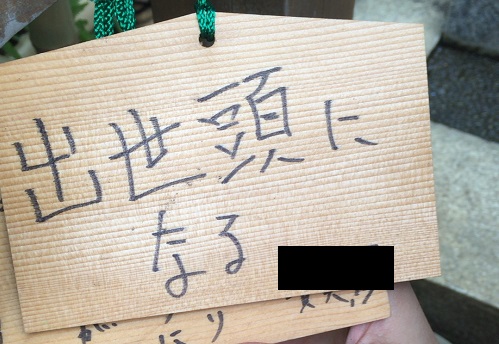 出世頭に
なる